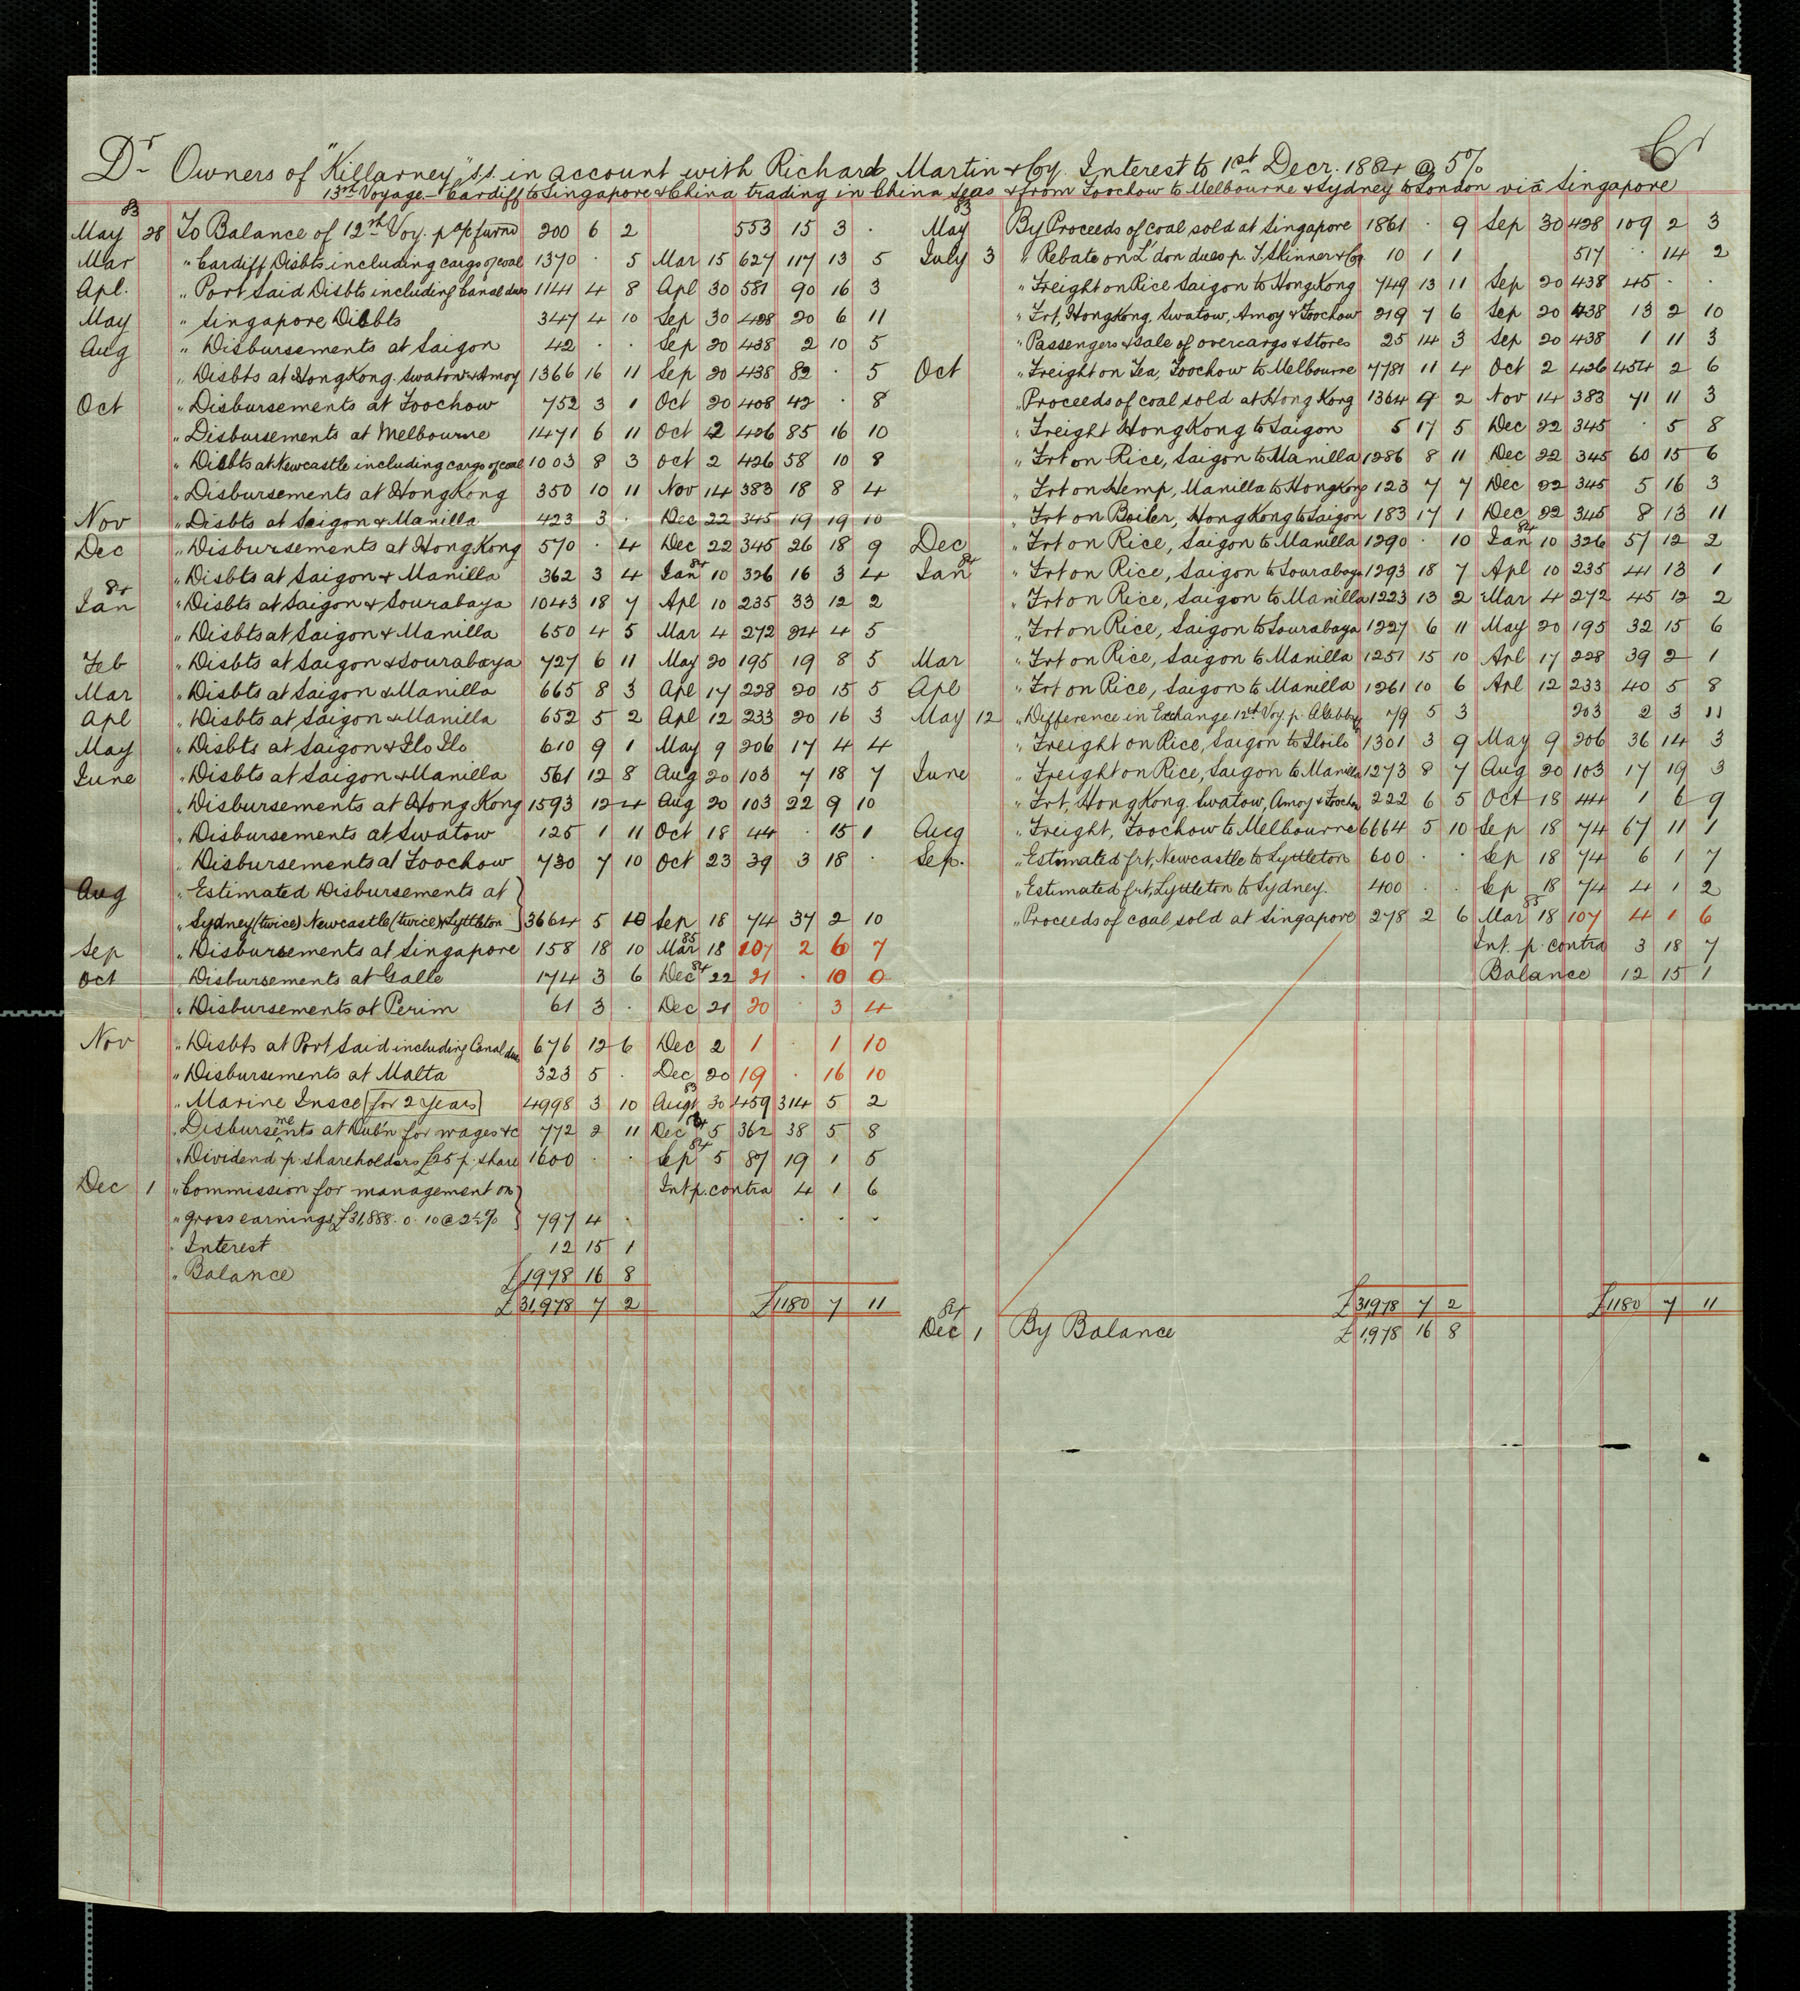 Dr Owners of "Killarney" s.s. in account with Richard Martin & Cy. Interest to 1st Decr. 1884 @ 5% Cr
13th Voyage - Cardiff to Singapore & China trading in China Seas & from Foochow to Melbourne & Sydney to London via Singapore
83
May 28 To Balance of 12th Voy. p a/c furnd 200 6 2 553 15 3 .
Mar " Cardiff Disbts including cargo of coal 1370 . 5 Mar 15 627 117 13 5
Apl. " Port Said Disbts including Canal dues 1141 4 8 Apl 30 581 90 16 3
May " Singapore Disbts 347 4 10 Sep 30 428 20 6 11
Aug " Disbursements at Saigon 42 . . Sep 20 438 2 10 5
" Disbts at Hong Kong. Swatow & Amoy 1366 16 11 Sep 20 438 82 . 5
Oct " Disbursements at Foochow 752 3 1 Oct 20 408 42 . 8
" Disbursements at Melbourne 1471 6 11 Oct 2 426 85 16 10
" Disbts at Newcastle including cargo of coal 1003 8 3 Oct 2 426 58 10 8
" Disbursements at Hong Kong 350 10 11 Nov 14 383 18 8 4
Nov " Disbts at Saigon & Manilla 423 3 . Dec 22 345 19 19 10
Dec " Disbursements at Hong Kong 570 . 4 Dec 22 345 26 18 9
" Disbts at Saigon & Manilla 362 3 4 Jan 84 10 326 16 3 4
84
Jan " Disbts at Saigon & Sourabaya 1043 18 7 Apl 10 235 33 12 2
" Disbts at Saigon & Manilla 650 4 5 Mar 4 272 24 4 5
Feb " Disbts at Saigon & Sourabaya 727 6 11 May 20 195 19 8 5
Mar " Disbts at Saigon & Manilla 665 8 3 Apl 17 228 20 15 5
Apl " Disbts at Saigon & Manilla 652 5 2 Apl 12 233 20 16 3
May " Disbts at Saigon & Ilo Ilo 610 9 1 May 9 206 17 4 4
June " Disbts at Saigon & Manilla 561 12 8 Aug 20 103 7 18 7
" Disbursements at Hong Kong 1593 12 4 Aug 20 103 22 9 10
" Disbursements at Swatow 125 1 11 Oct 18 44 . 15 1
" Disbursements at Foochow 730 7 10 Oct 23 39 3 18 .
Aug " Estimated Disbursements at
" Sydney (twice) Newcastle (twice) & Lyttleton 3664 5 10 Sep 18 74 37 2 10
Sep " Disbursements at Singapore 158 18 10 Mar 85 18 107 2 6 7
Oct " Disbursements at Galle 174 3 6 Dec 84 22 21 . 10 0
" Disbursements at Perim 61 3 . Dec 21 20 3 4
Nov " Disbts at Port Said including Canal dues 676 12 6 Dec 2 1 . 1 10
" Disbursements at Malta 323 5 . Dec 20 19 . 16 10
" Marine Insce [for 2 years] 4998 3 10 Augt 83 30 459 314 5 2
" Disbursements at Dub'n for wages &c 772 2 11 Dec 5 362 38 5 8
" Dividend p. shareholders £25 p. share 1600 . . Sep 84 5 87 19 1 5
Dec 1 " Commission for management on Int p. contra 4 1 6
" gross earnings £31,888. 0. 10 @ 2½% 797 4 . . . .
" Interest 12 15 1
" Balance £1978 16 8
£31,978 7 2 £1180 7 11
83
May By Proceeds of coal sold at Singapore 1861 . 9 Sep 30 428 109 2 3
July 3 " Rebate on L'don dues p. T. Skinner & Co 10 1 1 517 . 14 2
" Freight on Rice Saigon to Hong Kong 749 13 11 Sep 20 438 45 . .
" Frt, Hong Kong, Swatow, Amoy & Foochow 219 7 6 Sep 20 438 13 2 10
" Passengers & sale of overcargo & Stores 25 14 3 Sep 20 438 1 11 3
Oct " Freight on Tea, Foochow to Melbourne 7781 11 4 Oct 2 426 454 2 6
" Proceeds of coal sold at Hong Kong 1364 9 2 Nov 14 383 71 11 3
" Freight Hong Kong to Saigon 5 17 5 Dec 22 345 . 5 8
" Frt on Rice, Saigon to Manilla 1286 8 11 Dec 22 345 60 15 6
" Frt on Hemp, Manilla to Hong Kong 123 7 7 Dec 22 345 5 16 3
" Frt on Boiler, Hong Kong to Saigon 183 17 1 Dec 22 345 8 13 11
Dec " Frt on Rice, Saigon to Manilla 1290 . 10 Jan 84 10 326 57 12 2
Jan 84 " Frt on Rice, Saigon to Sourabaya 1293 18 7 Apl 10 235 41 13 1
" Frt on Rice, Saigon to Manilla 1223 13 2 Mar 4 272 45 12 2
" Frt on Rice, Saigon to Sourabaya 1227 6 11 May 20 195 32 15 6
Mar " Frt on Rice, Saigon to Manilla 1251 15 10 Apl 17 228 39 2 1
Apl " Frt on Rice, Saigon to Manilla 1261 10 6 Apl 12 233 40 5 8
May 12 " Difference in Exchange 12th Voy. p. 79 5 3 203 2 3 11
" Freight on Rice, Saigon to Iloilo 1301 3 9 May 9 206 36 14 3
June " Freight on Rice, Saigon to Manilla 1273 8 7 Aug 20 103 17 19 3
" Frt, Hong Kong. Swatow, Amoy & Foochow 222 6 5 Oct 18 44 1 6 9
Aug " Freight, Foochow to Melbourne 6664 5 10 Sep 18 74 67 11 1
Sep. " Estimated frt, Newcastle to Lyttleton 600 . . Sep 18 74 6 1 7
" Estimated frt, Lyttleton to Sydney. 400 . . Sep 18 74 4 1 2
" Proceeds of coal sold at Singapore 278 2 6 Mar 85 18 107 4 1 6
Int. p. contra 3 18 7
Balance 12 15 1
£31,978 7 2 £1180 7 11
84
Dec 1 By Balance £1,978 16 8